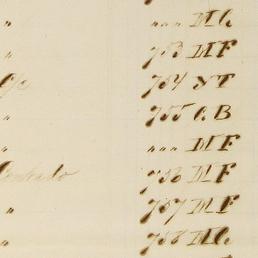 " """ M C.
" 753 M F
C/c 754 Y T
" 755 C. B
" """ M F
Contrato 756 M F
" 757 M F
" 758 M C.